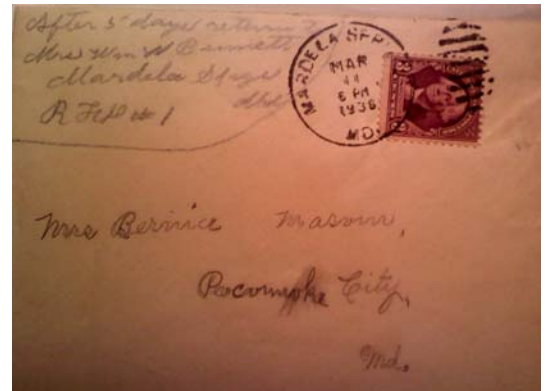 After 5 days return
Mrs Wm W Bennett
Mardela Spgs
R F D # 1 Md
MARDELA SPR
MAR
11
6 PM
1936
MD.
3
Mrs Bernice Mason,
Pocomoke City,
Md.